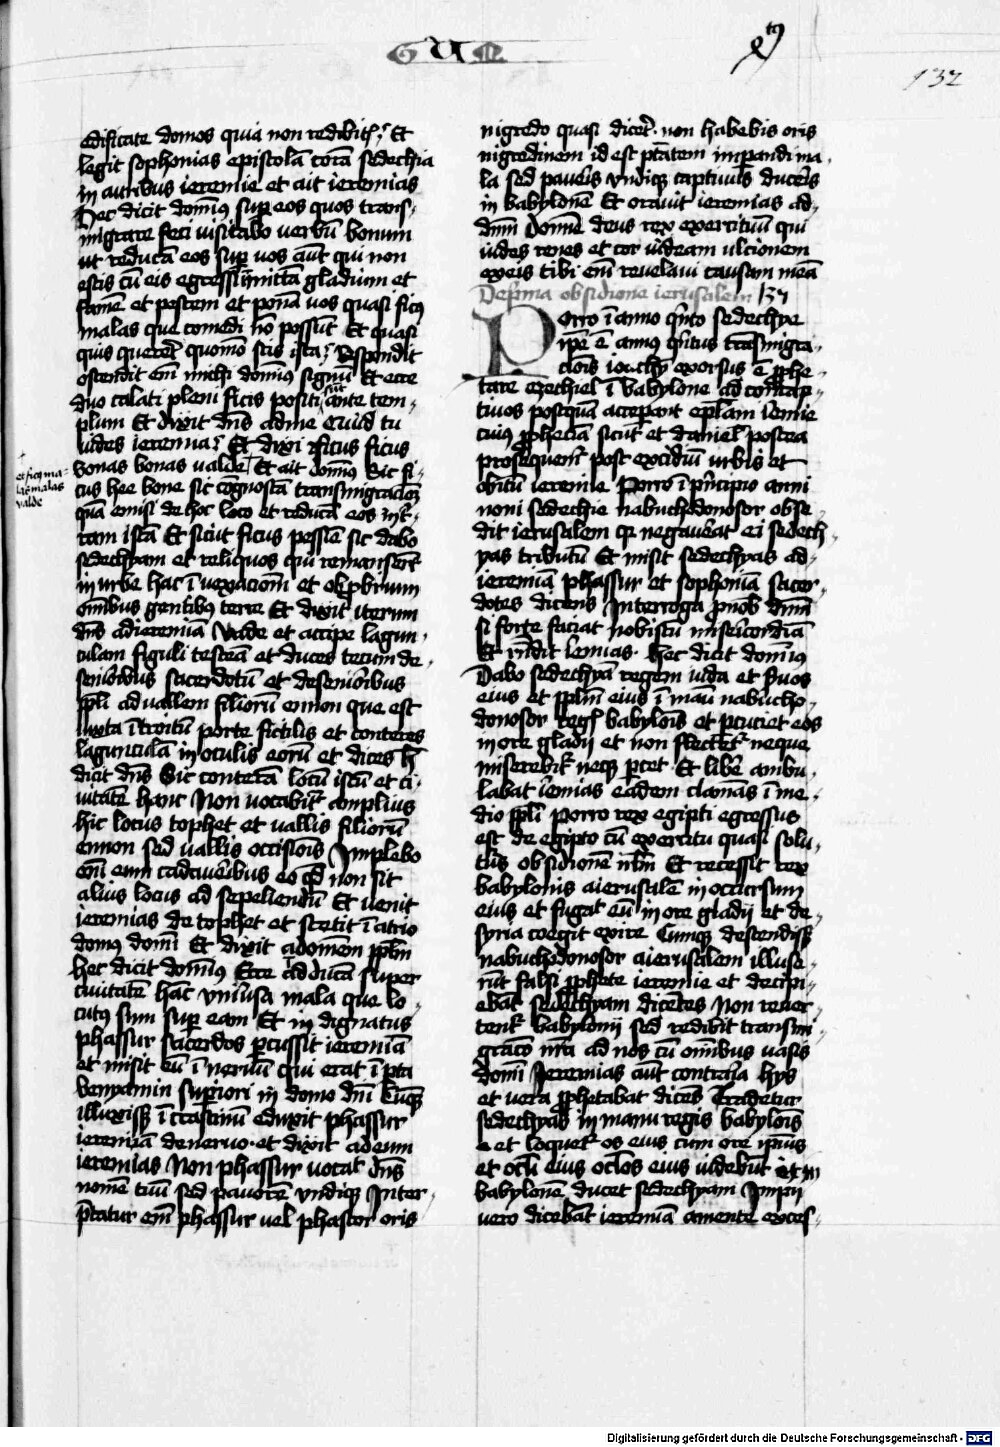 G U E
132
edificate domos quia non redibitꝭ Et
legit sophonias epistolā corā sedechia
in auribus ieremie et ait ieremias
Hec dicit domīus suꝑ eos quos trans-
migrare feci visitabo verbū bonum
ut reducā eos suꝑ vos aūt qui non
estis cū eis egressi īmittā gladium et
famē et pestem et ponā vos quasi ficꝰ
malas que comedi nō possūt Et quasi
quis quereret quomō scis ista Respondit
ostendit em̄ michi domīus signū Et ecce
duo calati pleni ficis positi sūt ante tem-
plum Et dixit dn̄s ad me Quid tu
uides ieremia Et dixi ficus ficus
bonas bonas valde Et ait domīus Sic fi-
et ficꝰ ma-
las malas
valde
cus hee bone sic cognoscā transmigracioꝫ
quā emisi de hoc loco et reducā eos in t̄-
ram istā Et sicut ficus pessīe sic dabo
sedechyam et reliquos qui remanserūt
in urbe hac ī vexaciom̄ et obꝓbrium
om̄ibus gentibus terre Et dixit iterum
dn̄s ad ieremiā Vade et accipe lagun-
culam figuli testeā et duces tecum de
senioribus sacerdotū et de senioribus
ppl̄i ad vallem filiorū ennon que est
iuxta ītroitū porte fictilis et conteres
lagunculā in oculis eorū et dices h̄
dicit dn̄s Sic conterā locū istū et ci-
uitatē hanc Non vocabit᷑ amplius
hic locus tophet et vallis filiorū
ennon sed vallis occisiōis Implebo
em̄ eum cadaueribus eo qd̄ non sit
alius locus ad sepeliendū Et uenit
ieremias de tophet et stetit ī atrio
domꝰ domī Et dixit ad omem ppl̄m
hec dicit domīus Ecce adducā super
ciuitatē hāc vniūsa mala que lo-
cutus sum suꝑ eam Et indignatus
phassur sacerdos ꝑcussit ieremiā
et misit eū ī neruū qui erat ī pta
benyamin suꝑiori in domo dn̄i Cūqꝫ
illuxissꝫ ī crastinū eduxit phassur
ieremiā de neruo et dixit ad eum
ieremias Non phassur uocat dn̄s
nomē tuū sed pauorē vndiqꝫ Inter-
p̄tatur em̄ phassur vel phascor oris
nigredo quasi dicēt non habebis oris
nigredinem id est ptātem impandi ma-
la sed paueis vndiqꝫ captiuus duceris
in babylonē Et orauit ieremias ad
dn̄m Domīe deus rex exercituū qui
uides renes et cor uideam ulcionem
ex eis tibi em̄ reuelaui causam meā
De prima obsidione ierusalem
Porro ī anno qīnto sedechye
ipe ē annus qītus trāsmigra-
ciōis ioachȳ exorsus ē ꝓphe-
tare ezechiel ī babylone ad concap-
tiuos posquā acceperant epl̄am iemie
cuiꝰ ꝓpheciā sicut et daniel postea
prosequem᷑ post excidiū urbis et
obitū ieremie Porro ī pn̄cipio anni
noni sedechie nabuchodonosor obse-
dit ierusalem qꝫ negauerat ei sedech-
yas tributū Et misit sedechyas ad
ieremiā phassur et sophoniā sacer-
dotes dicens Interroga ꝓ nob dn̄m
si forte faciat nobiscū misericordiā
Et rn̄dit iemias hec dicit domīus
Dabo sedechyā regem iuda et suos
eius et ppl̄m eius ī manū nabucho-
donosor regꝭ babylōis et ꝑcuciet eos
in ore gladij et non flectet᷑ neque
miserebit᷑ neqꝫ ꝑcet Et libē ambu-
labat iēmias eadem clamās ī me-
dio ppl̄i Porro rex egipti egressus
est de egipto cū exercitu quasi solu-
turꝰ obsidionē ierl̄m Et recessit rex
babylonis a ierusalē in occursum
eius et fugat eū in ore gladij et de
syria coegit exire Cumqꝫ descendissꝫ
nabuchodonosor a ierusalem illuse-
rūt falsi ꝓphete ieremie et decipi-
ebāt sedechyam dicētes Non reuer-
tent᷑ babylonij sed redibit transmi-
gracō nr̄a ad nos cū om̄ibus vasis
domī Ieremias aut contraria hys
et vera ꝓphetabat dicēs Tradetur
sedechyas in manu regis babylōis
et loquet᷑ os eius cum ore ipsius
et ocl̄i eius ocl̄os eius uidebūt et in
babylonē ducet sedechyam Impij
vero dicebāt ieremiā a mente exces-
Digitalisierung gefördert durch die Deutsche Forschungsgemeinschaft - DFG